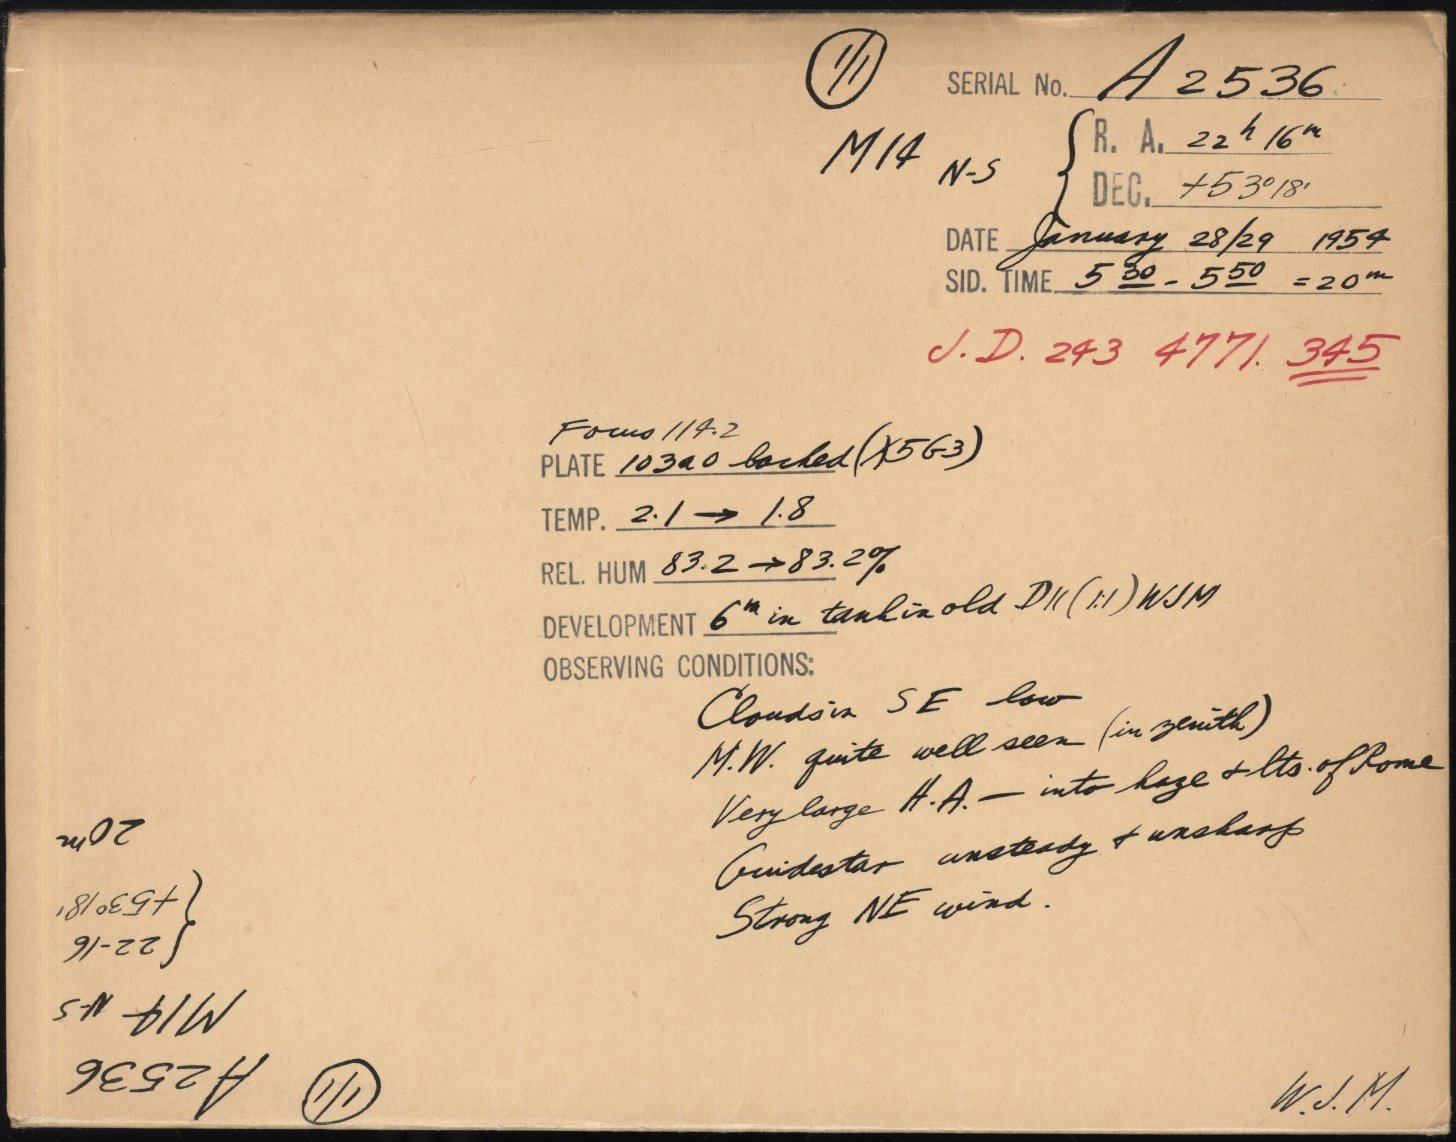 1/1
SERIAL No. A 2536
M14 N-S { R. A. 22h 16m
DEC. +53°18'
DATE January 28/29 1954
SID. TIME 5 30 - 5 50 = 20m
J.D. 243 4771. 345
Focus 114.2
PLATE 103a0 backed (X5G3)
TEMP. 2.1 → 1.8
REL. HUM 83.2 → 83.2%
DEVELOPMENT 6m in tank in old D11 (1:1) WJM
OBSERVING CONDITIONS:
Clouds in SE low
M.W. quite well seen (in zenith)
Very large H.A. — into haze & lts. of Rome
Guidestar unsteady & unsharp
Strong NE wind.
W.J.M.
1/1
A2536
M14 N-S
{ 22-16
+53°18'
20m